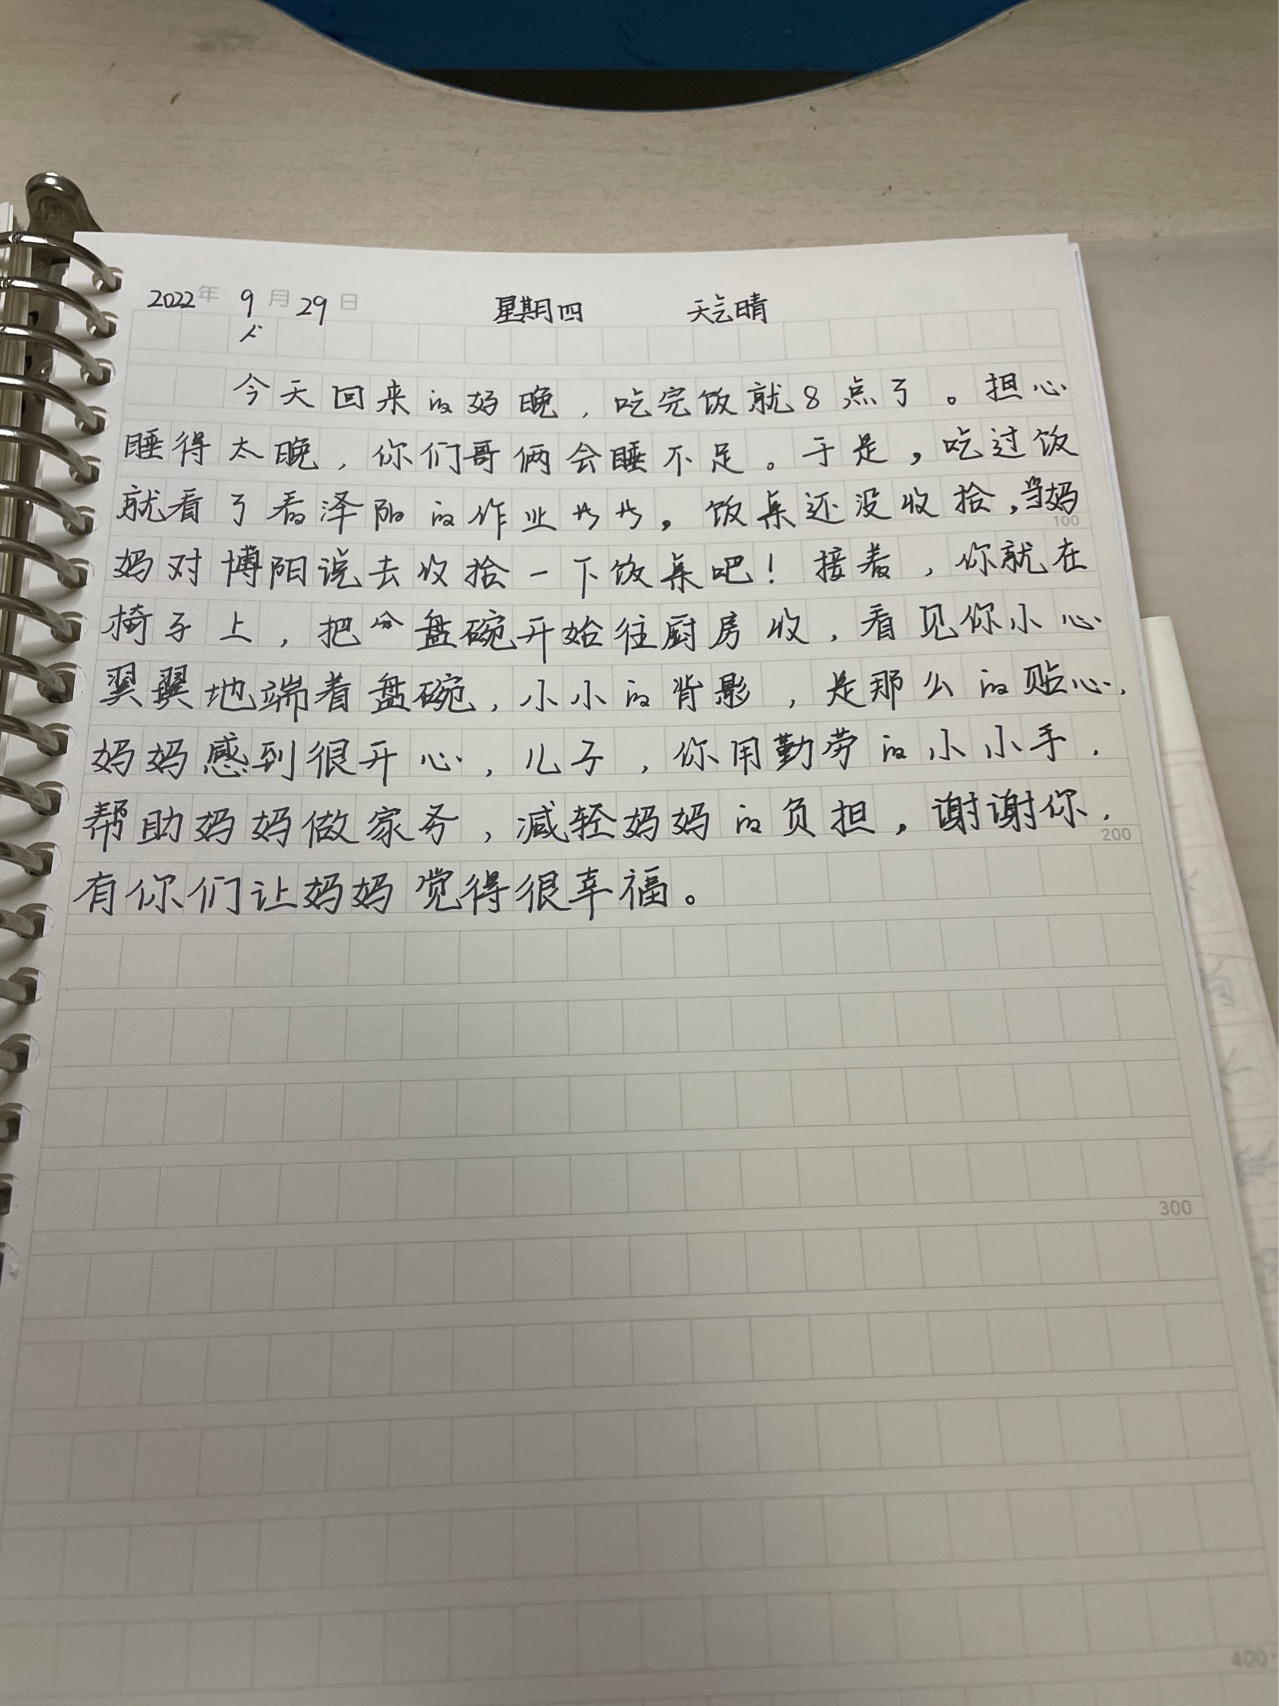 2022年 9月29日 星期四 天气晴
今天回来的好晚，吃完饭就8点了。担心
睡得太晚，你们哥俩会睡不足。于是，吃过饭
就看了看泽阳的作业，饭桌还没收拾，当妈
100
妈对博阳说去收拾一下饭桌吧！接着，你就在
椅子上，把盘碗开始往厨房收，看见你小心
翼翼地端着盘碗，小小的背影，是那么的贴心，
妈妈感到很开心，儿子，你用勤劳的小小手，
帮助妈妈做家务，减轻妈妈的负担，谢谢你，
200
有你们让妈妈觉得很幸福。
300
400